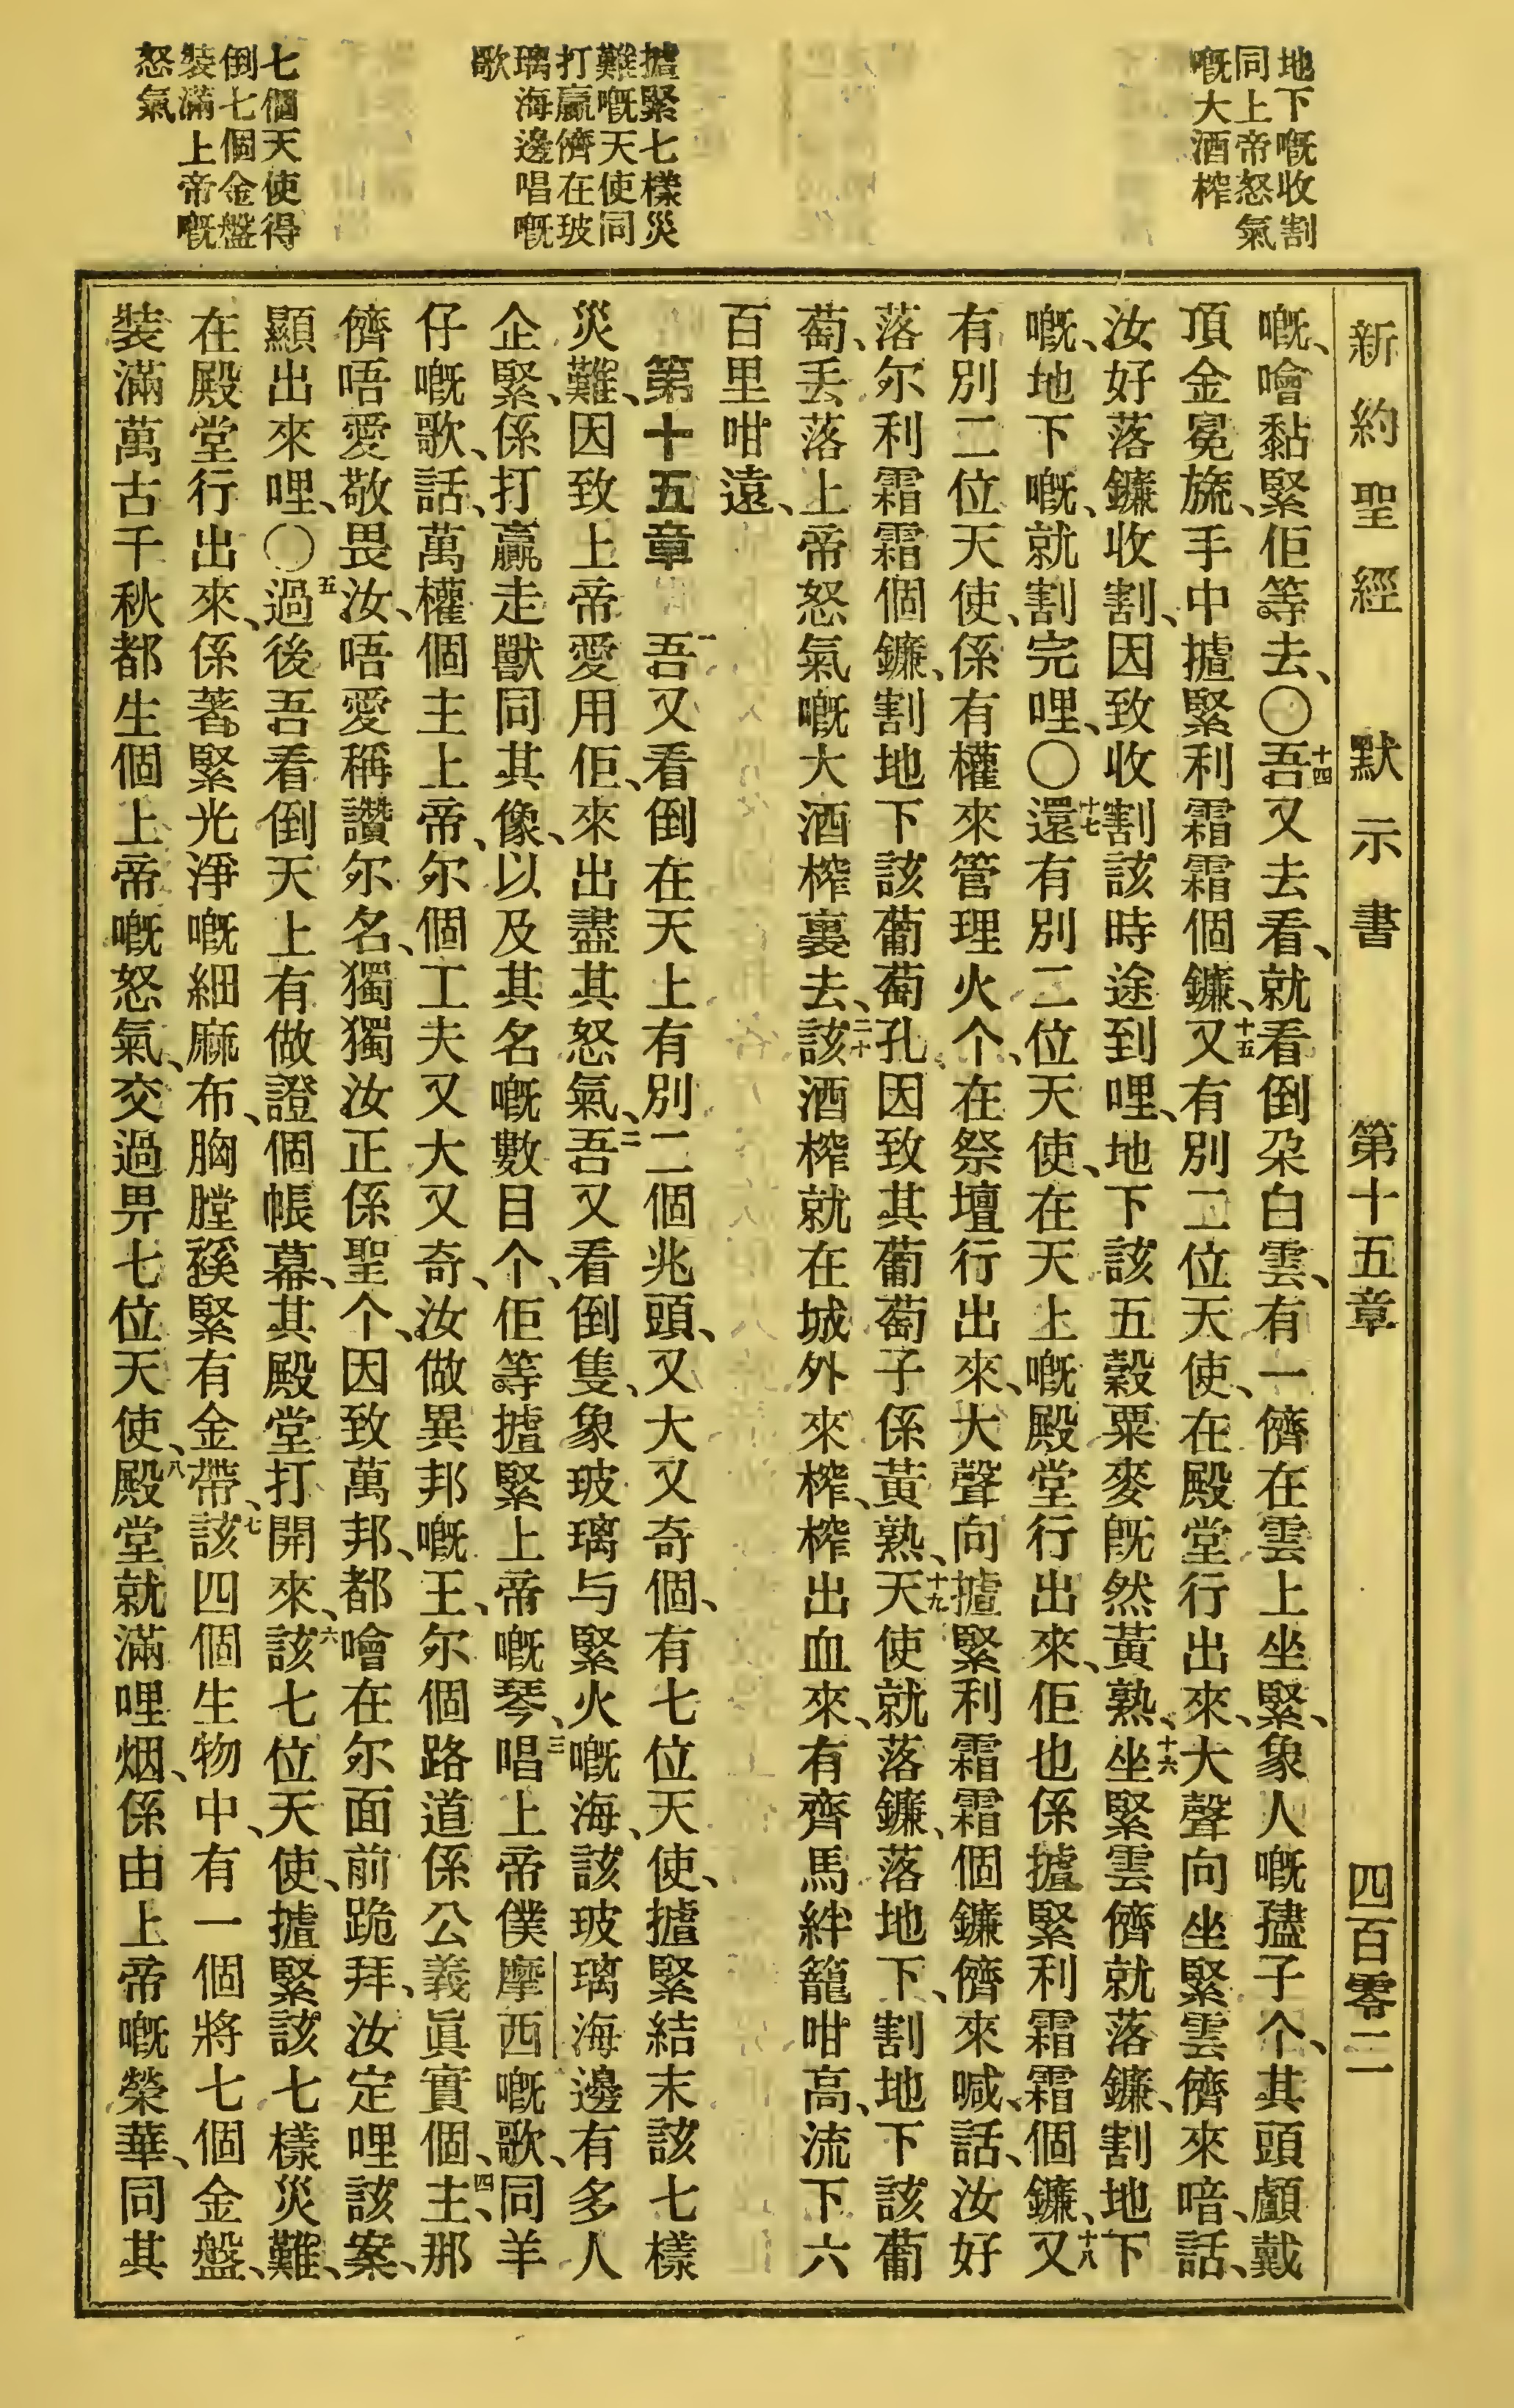 地下嘅收割
同上帝怒氣
嘅大酒榨
攎緊七樣災
難嘅天使同
打贏儕在玻
璃海邊唱嘅
歌
七個天使得
倒七個金盤
裝滿上帝嘅
怒氣
新約聖經 默示書 第十五章 四百零三
嘅、噲黏緊佢等去、〇十四吾又去看、就看倒朶白雲、有一儕在雲上坐緊、象人嘅𤘅子个、其頭顱戴
頂金冕旒、手中攎緊利霜霜個鐮、十五又有別二位天使、在殿堂行出來、大聲向坐緊雲儕來喑、話、
汝好落鐮收割、因致收割該時途到哩、地下該五穀粟麥既然黃熟、十六坐緊雲儕就落鐮、割地下
嘅、地下嘅、就割完哩、〇十七還有別二位天使、在天上嘅殿堂行出來、佢也係攎緊利霜霜個鐮、十八又
有別二位天使、係有權來管理火个、在祭壇行出來、大聲向攎緊利霜霜個鐮儕來喊、話、汝好
落尔利霜霜個鐮、割地下該葡萄孔因致其葡萄子係黃熟、十九天使就落鐮、落地下、割地下該葡
萄、丟落上帝怒氣嘅大酒榨裏去、二十該酒榨就在城外來榨、榨出血來、有齊馬絆籠咁高、流下六
百里咁遠、
第十五章 一吾又看倒在天上有別二個兆頭、又大又奇個、有七位天使、攎緊結末該七樣
災難、因致上帝愛用佢、來出盡其怒氣、二吾又看倒隻、象玻璃与緊火嘅海、該玻璃海邊有多人
企緊、係打贏走獸同其像、以及其名嘅數目个、佢等攎緊上帝嘅琴、三唱上帝僕摩西嘅歌、同羊
仔嘅歌、話、萬權個主上帝、尔個工夫又大又奇、汝做異邦嘅王、尔個路道係公義眞實個、四主、那
儕唔愛敬畏汝、唔愛稱讚尔名、獨獨汝正係聖个、因致萬邦、都噲在尔面前跪拜、汝定哩該案、
顯出來哩、〇五過後吾看倒天上有做證個帳幕、其殿堂打開來、六該七位天使、攎緊該七樣災難、
在殿堂行出來、係著緊光淨嘅細麻布、胸膛繫緊有金帶、七該四個生物中、有一個將七個金盤、
裝滿萬古千秋都生個上帝嘅怒氣、交過畀七位天使、八殿堂就滿哩烟、係由上帝嘅榮華、同其